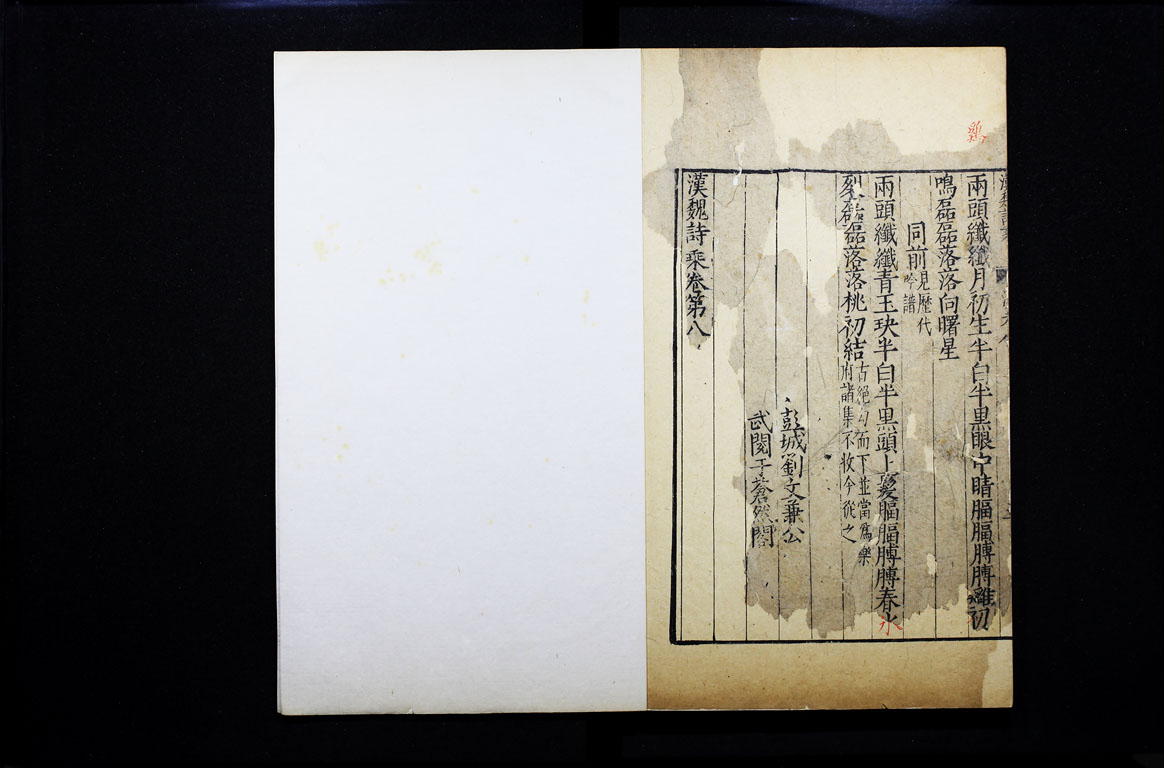 雞
兩頭纖纖月初生半白半黑眼中睛腷腷膊膊雞初
鳴磊磊落落向曙星
同前見歷代吟譜
兩頭纖纖青玉玦半白半黑頭上髮腷腷膊膊春冰
裂磊磊落落桃初結古絕句而下並當為樂府諸集不收今從之
彭城劉文兼公
武閱于蒼然閣
漢魏詩乘卷第八